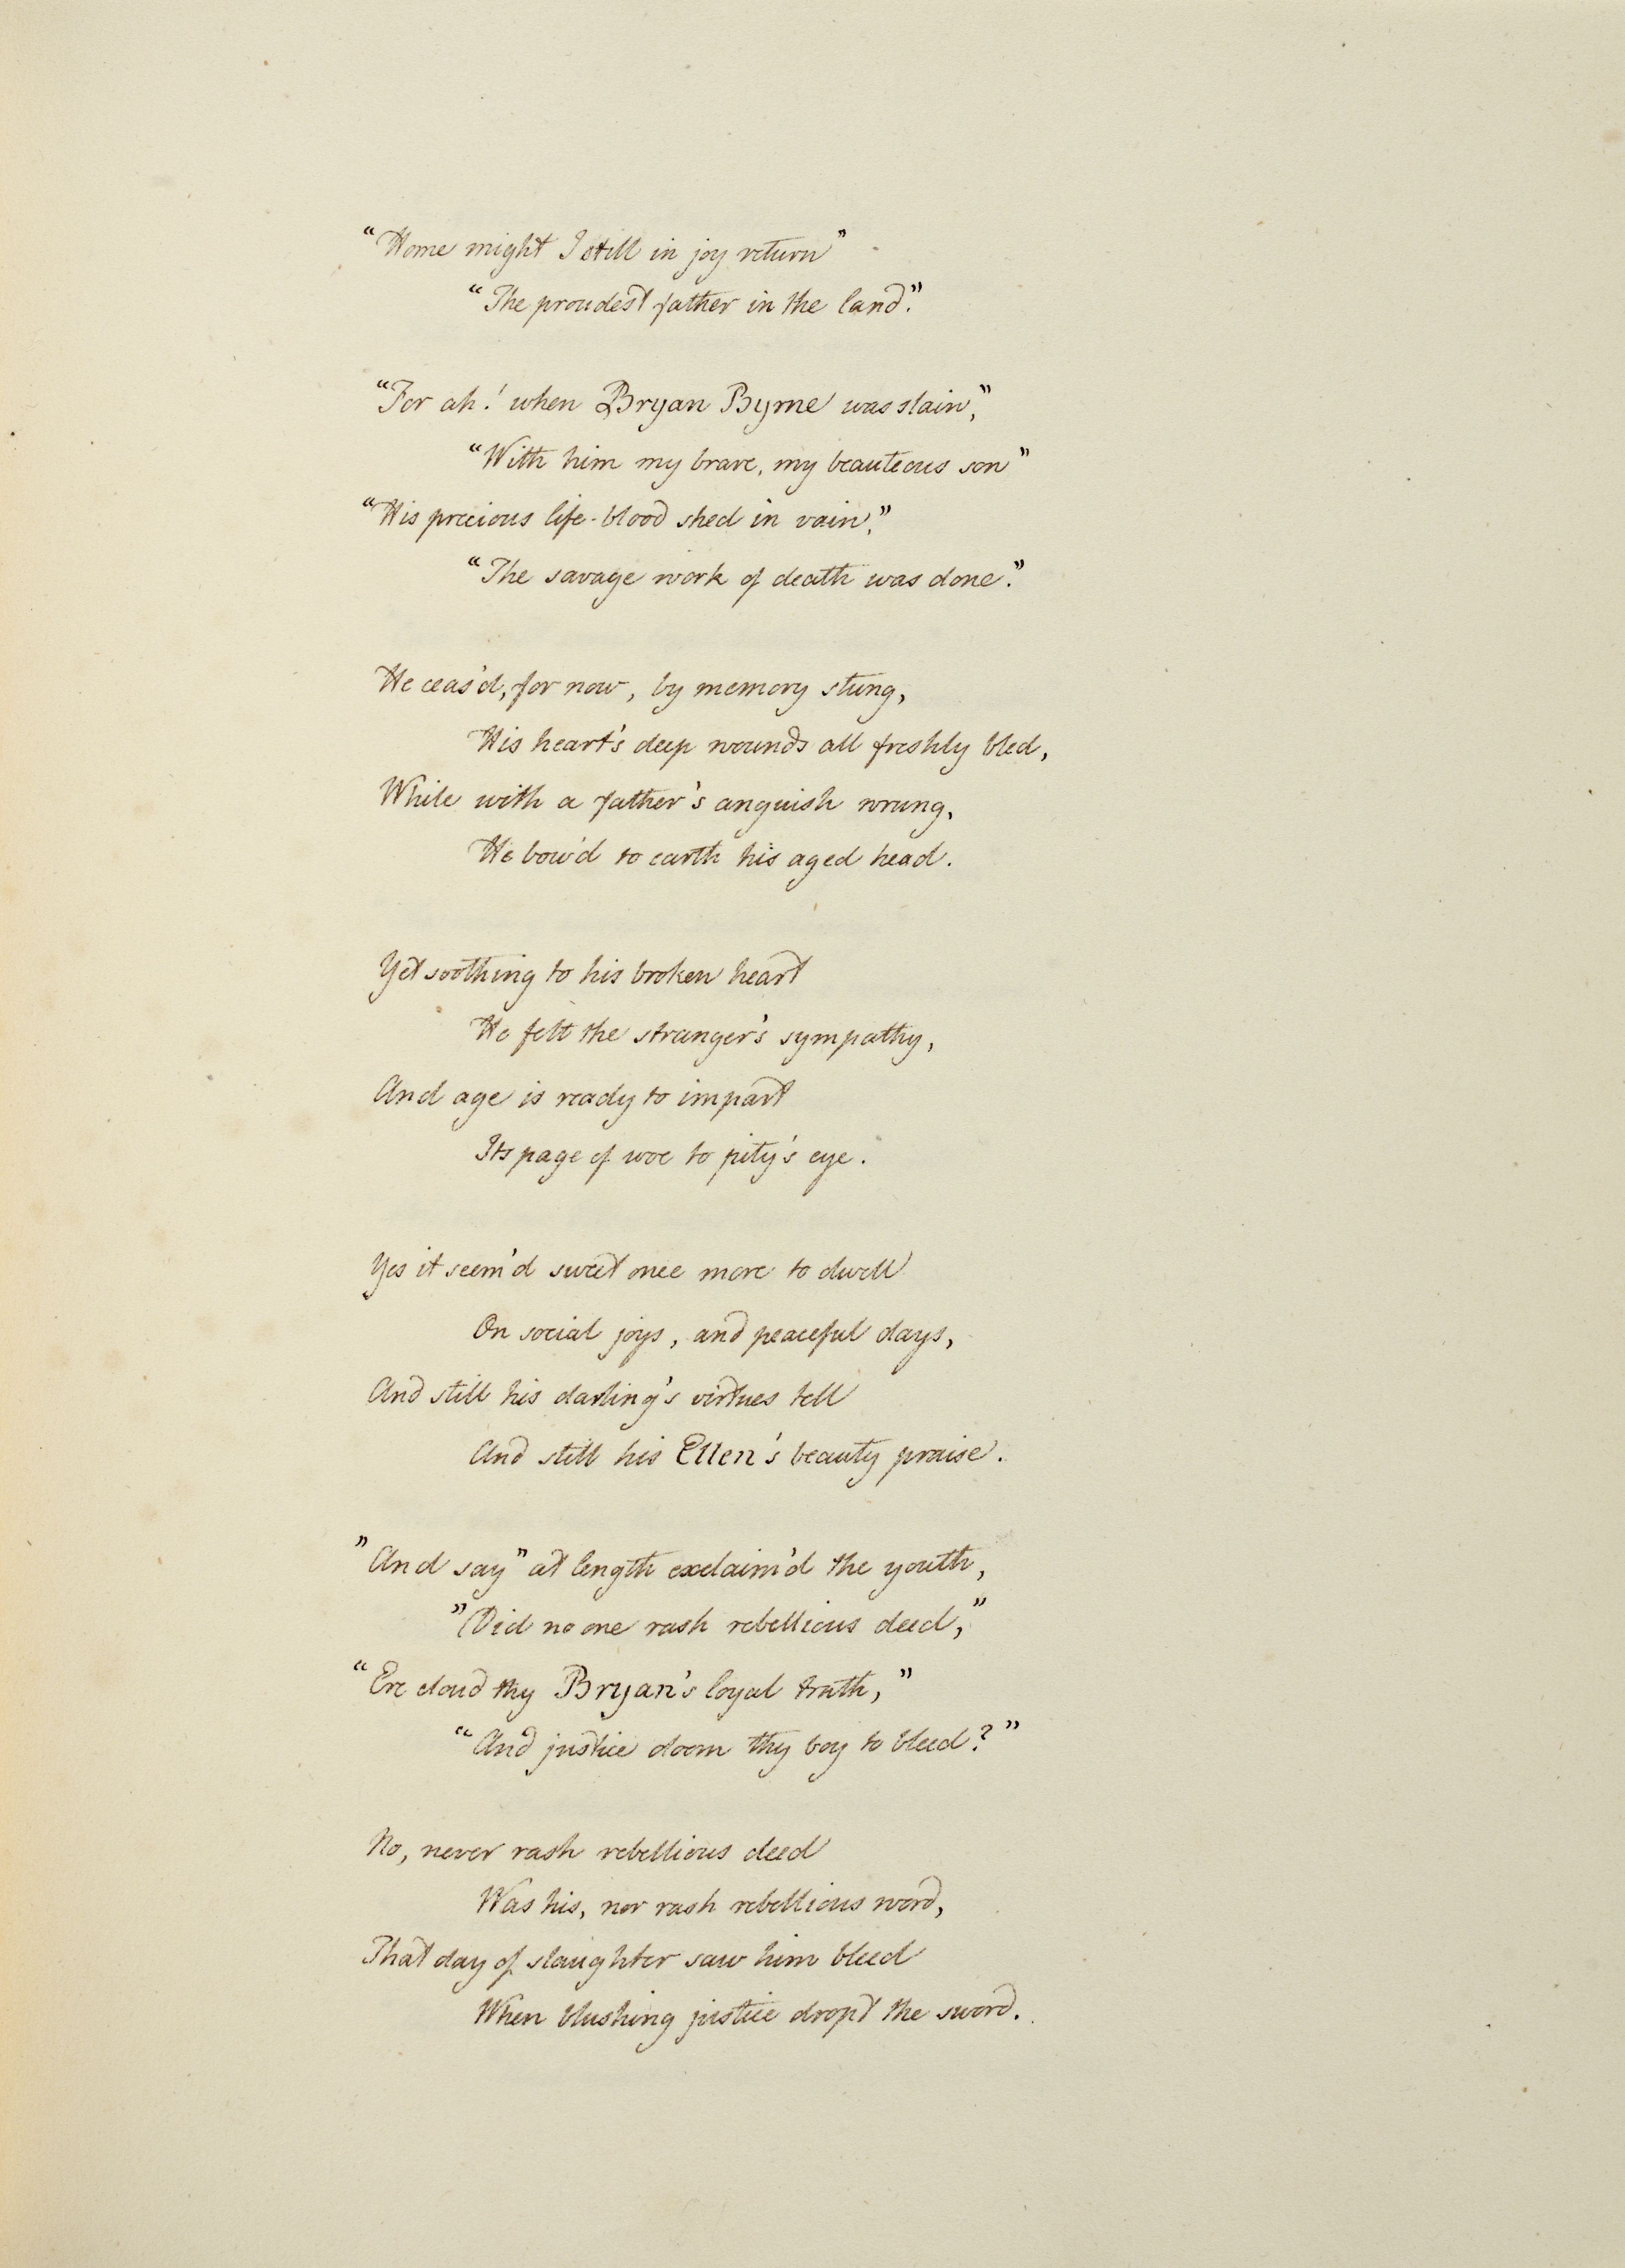 “Home might I still in joy return”
“The proudest father in the land.”
“For ah! when Bryan Byrne was slain,”
“With him my brave, my beauteous son”
“His precious life-blood shed in vain,”
“The savage work of death was done.”
He ceas'd, for now, by memory stung,
His heart's deep wounds all freshly bled,
While with a father's anguish wrung,
He bow'd to earth his aged head.
Yet soothing to his broken heart
He felt the stranger's sympathy,
And age is ready to impart
Its page of woe to pity's eye.
Yes it seem'd sweet once more to dwell
On social joys, and peaceful days,
And still his darling's virtues tell
And still his Ellen's beauty praise.
”And say” at length exclaim'd the youth,
”Did no one rash rebellious deed,”
“Ere cloud thy Bryan's loyal truth,”
“And justice doom thy boy to bleed?”
No, never rash rebellious deed
Was his, nor rash rebellious word,
That day of slaughter saw him bleed
When blushing justice dropt the sword.